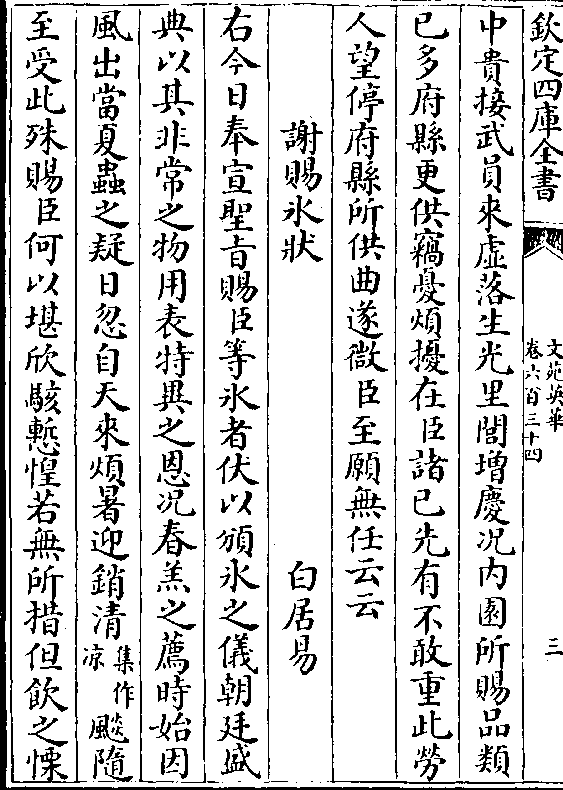 欽定四庫全書
文苑英華
卷六百三十四
三
中貴接武員來虛落生光里閭增慶况内園所賜品類
已多府縣更供竊憂煩擾在臣諸已先有不敢重此勞
人望停府縣所供曲遂微臣至願無任云云
謝賜氷狀 白居易
右今日奉宣聖旨賜臣等氷者伏以頒氷之儀朝廷盛
典以其非常之物用表特異之恩况春羔之薦時始因
風出當夏蟲之疑日忽自天來煩暑迎銷清集作凉飈隨
至受此殊賜臣何以堪欣駭慙惶若無所措但飲之慄